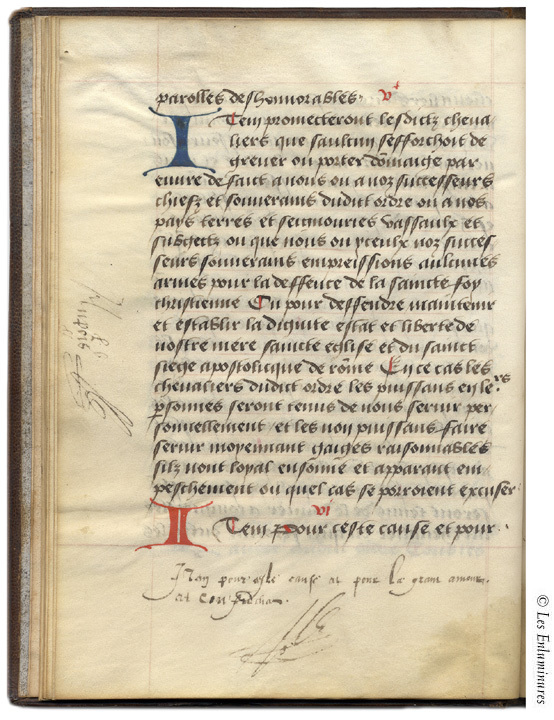 parolles deshonnorables · v
Item promecteront lesdictz cheva
liers que saulcun sefforchoit de
grever ou porter dommaige par
euvre de faict a nous ou a noz successeurs
chiefz et souverains dudict ordre ou a nos
pays terres et seignouries vassaulx et
subgectz ou que nous ou yceulx noz succes
seurs souverains empreissions aulcunes
armes pour la deffence de la saincte foy
christienne Ou pour deffendre maintenir
et establir la dignite estat et liberte de
nostre mere saincte eglise et du sainct
siege apostolicque de rōme En ce cas les
chevaliers dudict ordre les puissans en leurs
psonnes seront tenus de nous servir per
sonnellement et les non puissans faire
servir moyennant gaiges raisonnables
silz nont loyal ensōnne et apparant em
peschement ou quel cas se porroient excuser
vi
Item Pour ceste cause et pour
Item pour ceste cause et pour la grant amour
et
© Les Enluminures